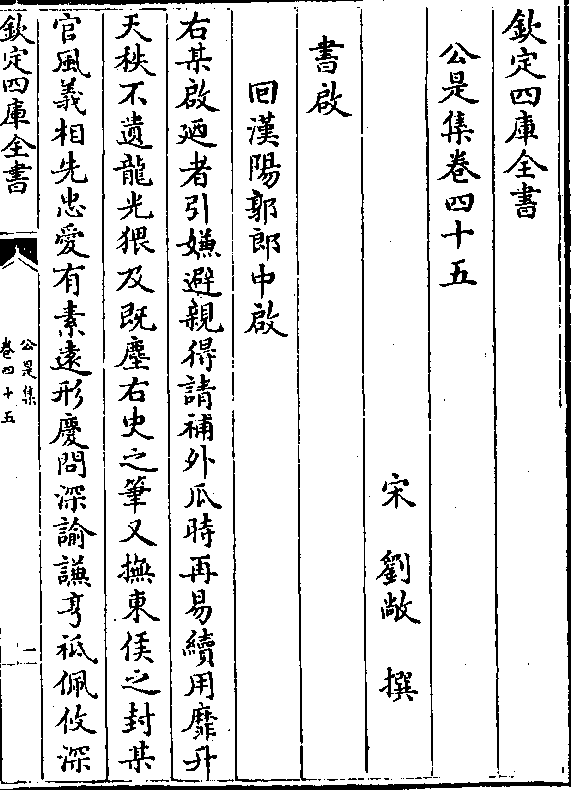 欽定四庫全書
公是集卷四十五
宋 劉敞 撰
書啟
回漢陽郭郎中啟
右某啟廼者引嫌避親得請補外瓜時再易續用靡升
天秩不遺龍光猥及既塵右史之筆又撫東侯之封某
官風義相先忠愛有素遠形慶問深諭謙亨祗佩攸深
欽定四庫全書
公是集
卷四十五
一